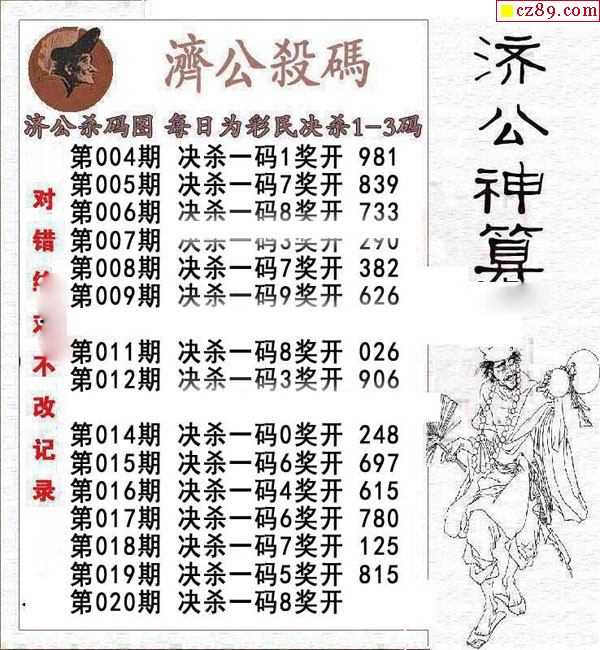 cz89.com
濟公殺碼
济公杀码图 每日为彩民决杀1-3码
第004期 决杀一码1奖开 981
第005期 决杀一码7奖开 839
第006期 决杀一码8奖开 733
第007期 决杀一码3奖开 290
第008期 决杀一码7奖开 382
第009期 决杀一码9奖开 626
第011期 决杀一码8奖开 026
第012期 决杀一码3奖开 906
第014期 决杀一码0奖开 248
第015期 决杀一码6奖开 697
第016期 决杀一码4奖开 615
第017期 决杀一码6奖开 780
第018期 决杀一码7奖开 125
第019期 决杀一码5奖开 815
第020期 决杀一码8奖开
对错绝对不改记录
济公神算